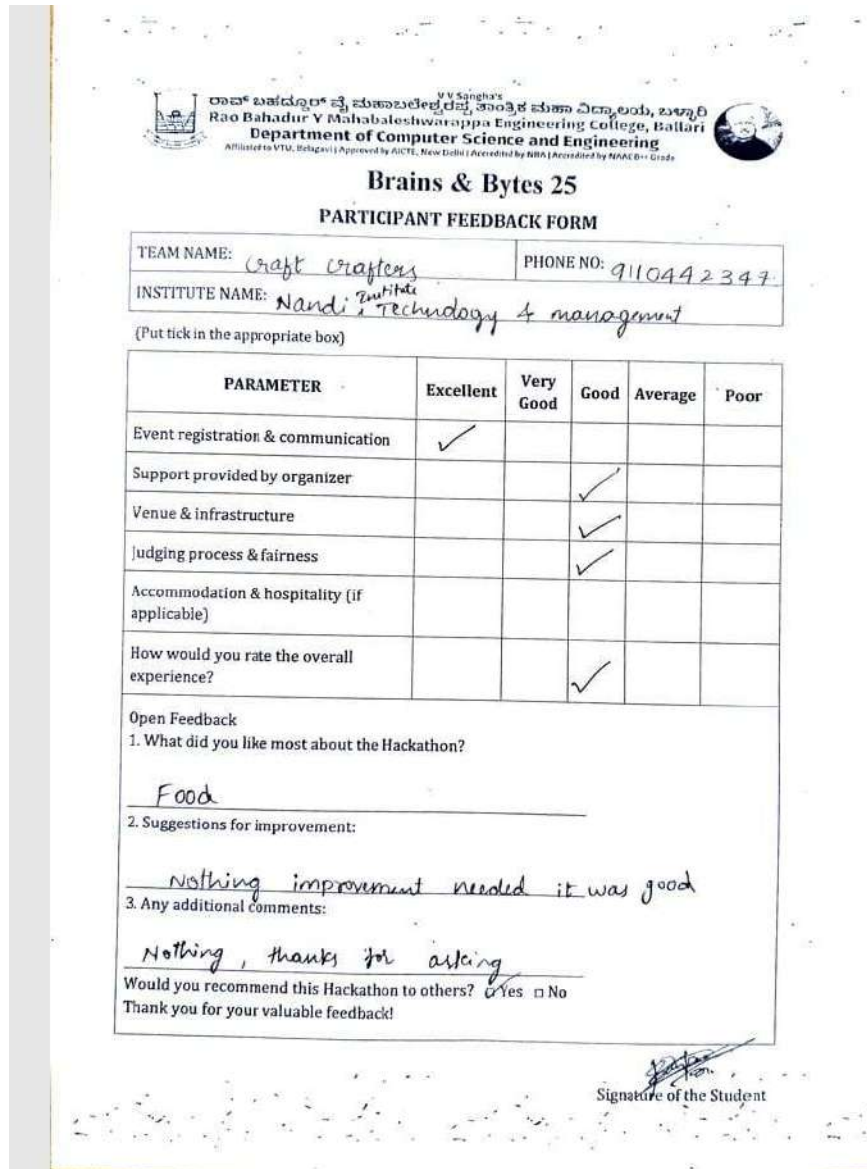 V V Sangha's
ರಾವ್ ಬಹದ್ದೂರ್ ವೈ ಮಹಾಬಲೇಶ್ವರಪ್ಪ ತಾಂತ್ರಿಕ ಮಹಾ ವಿದ್ಯಾಲಯ, ಬಳ್ಳಾರಿ
Rao Bahadur Y Mahabaleshwarappa Engineering College, Ballari
Department of Computer Science and Engineering
Affiliated to VTU, Belagavi | Approved by AICTE, New Delhi | Accredited by NBA | Accredited by NAAC B++ Grade
Brains & Bytes 25
PARTICIPANT FEEDBACK FORM
TEAM NAME: Craft Crafters PHONE NO: 9110442347
INSTITUTE NAME: Nandi Institute Technology & management
(Put tick in the appropriate box)
PARAMETER Excellent Very Good Good Average Poor
Event registration & communication ✓
Support provided by organizer ✓
Venue & infrastructure ✓
Judging process & fairness ✓
Accommodation & hospitality (if
applicable)
How would you rate the overall
experience? ✓
Open Feedback
1. What did you like most about the Hackathon?
Food
2. Suggestions for improvement:
Nothing improvement needed it was good
3. Any additional comments:
Nothing, thanks for asking
Would you recommend this Hackathon to others? ☑Yes □ No
Thank you for your valuable feedback!
Signature of the Student